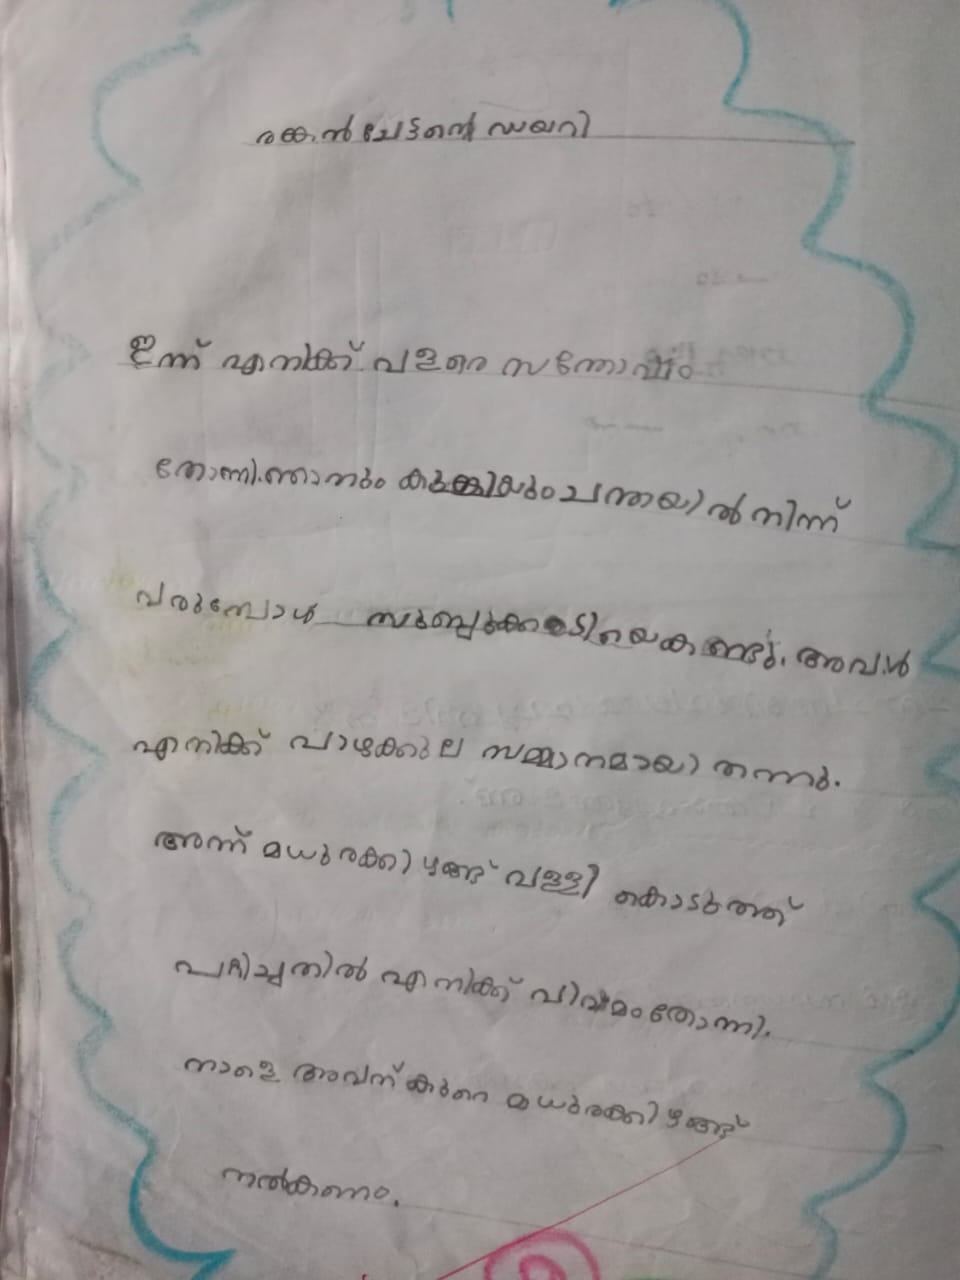 രങ്കൻ ചേട്ടന്റെ ഡയറി
ഇന്ന് എനിക്ക് വളരെ സന്തോഷം
തോണി.ഞാനും കുങ്കിയും ചന്തയിൽ നിന്ന്
വരുമ്പോൾ സുബ്ബുക്കുട്ടിയെ കണ്ടു. അവൾ
എനിക്ക് വാഴക്കുല സമ്മാനമായി തന്നു.
അന്ന് മധുരക്കിഴങ്ങ് വള്ളി കൊടുത്ത്
പറ്റിച്ചതിൽ എനിക്ക് വിഷമം തോന്നി.
നാളെ അവന് കുറെ മധുരക്കിഴങ്ങ്
നൽകണം.